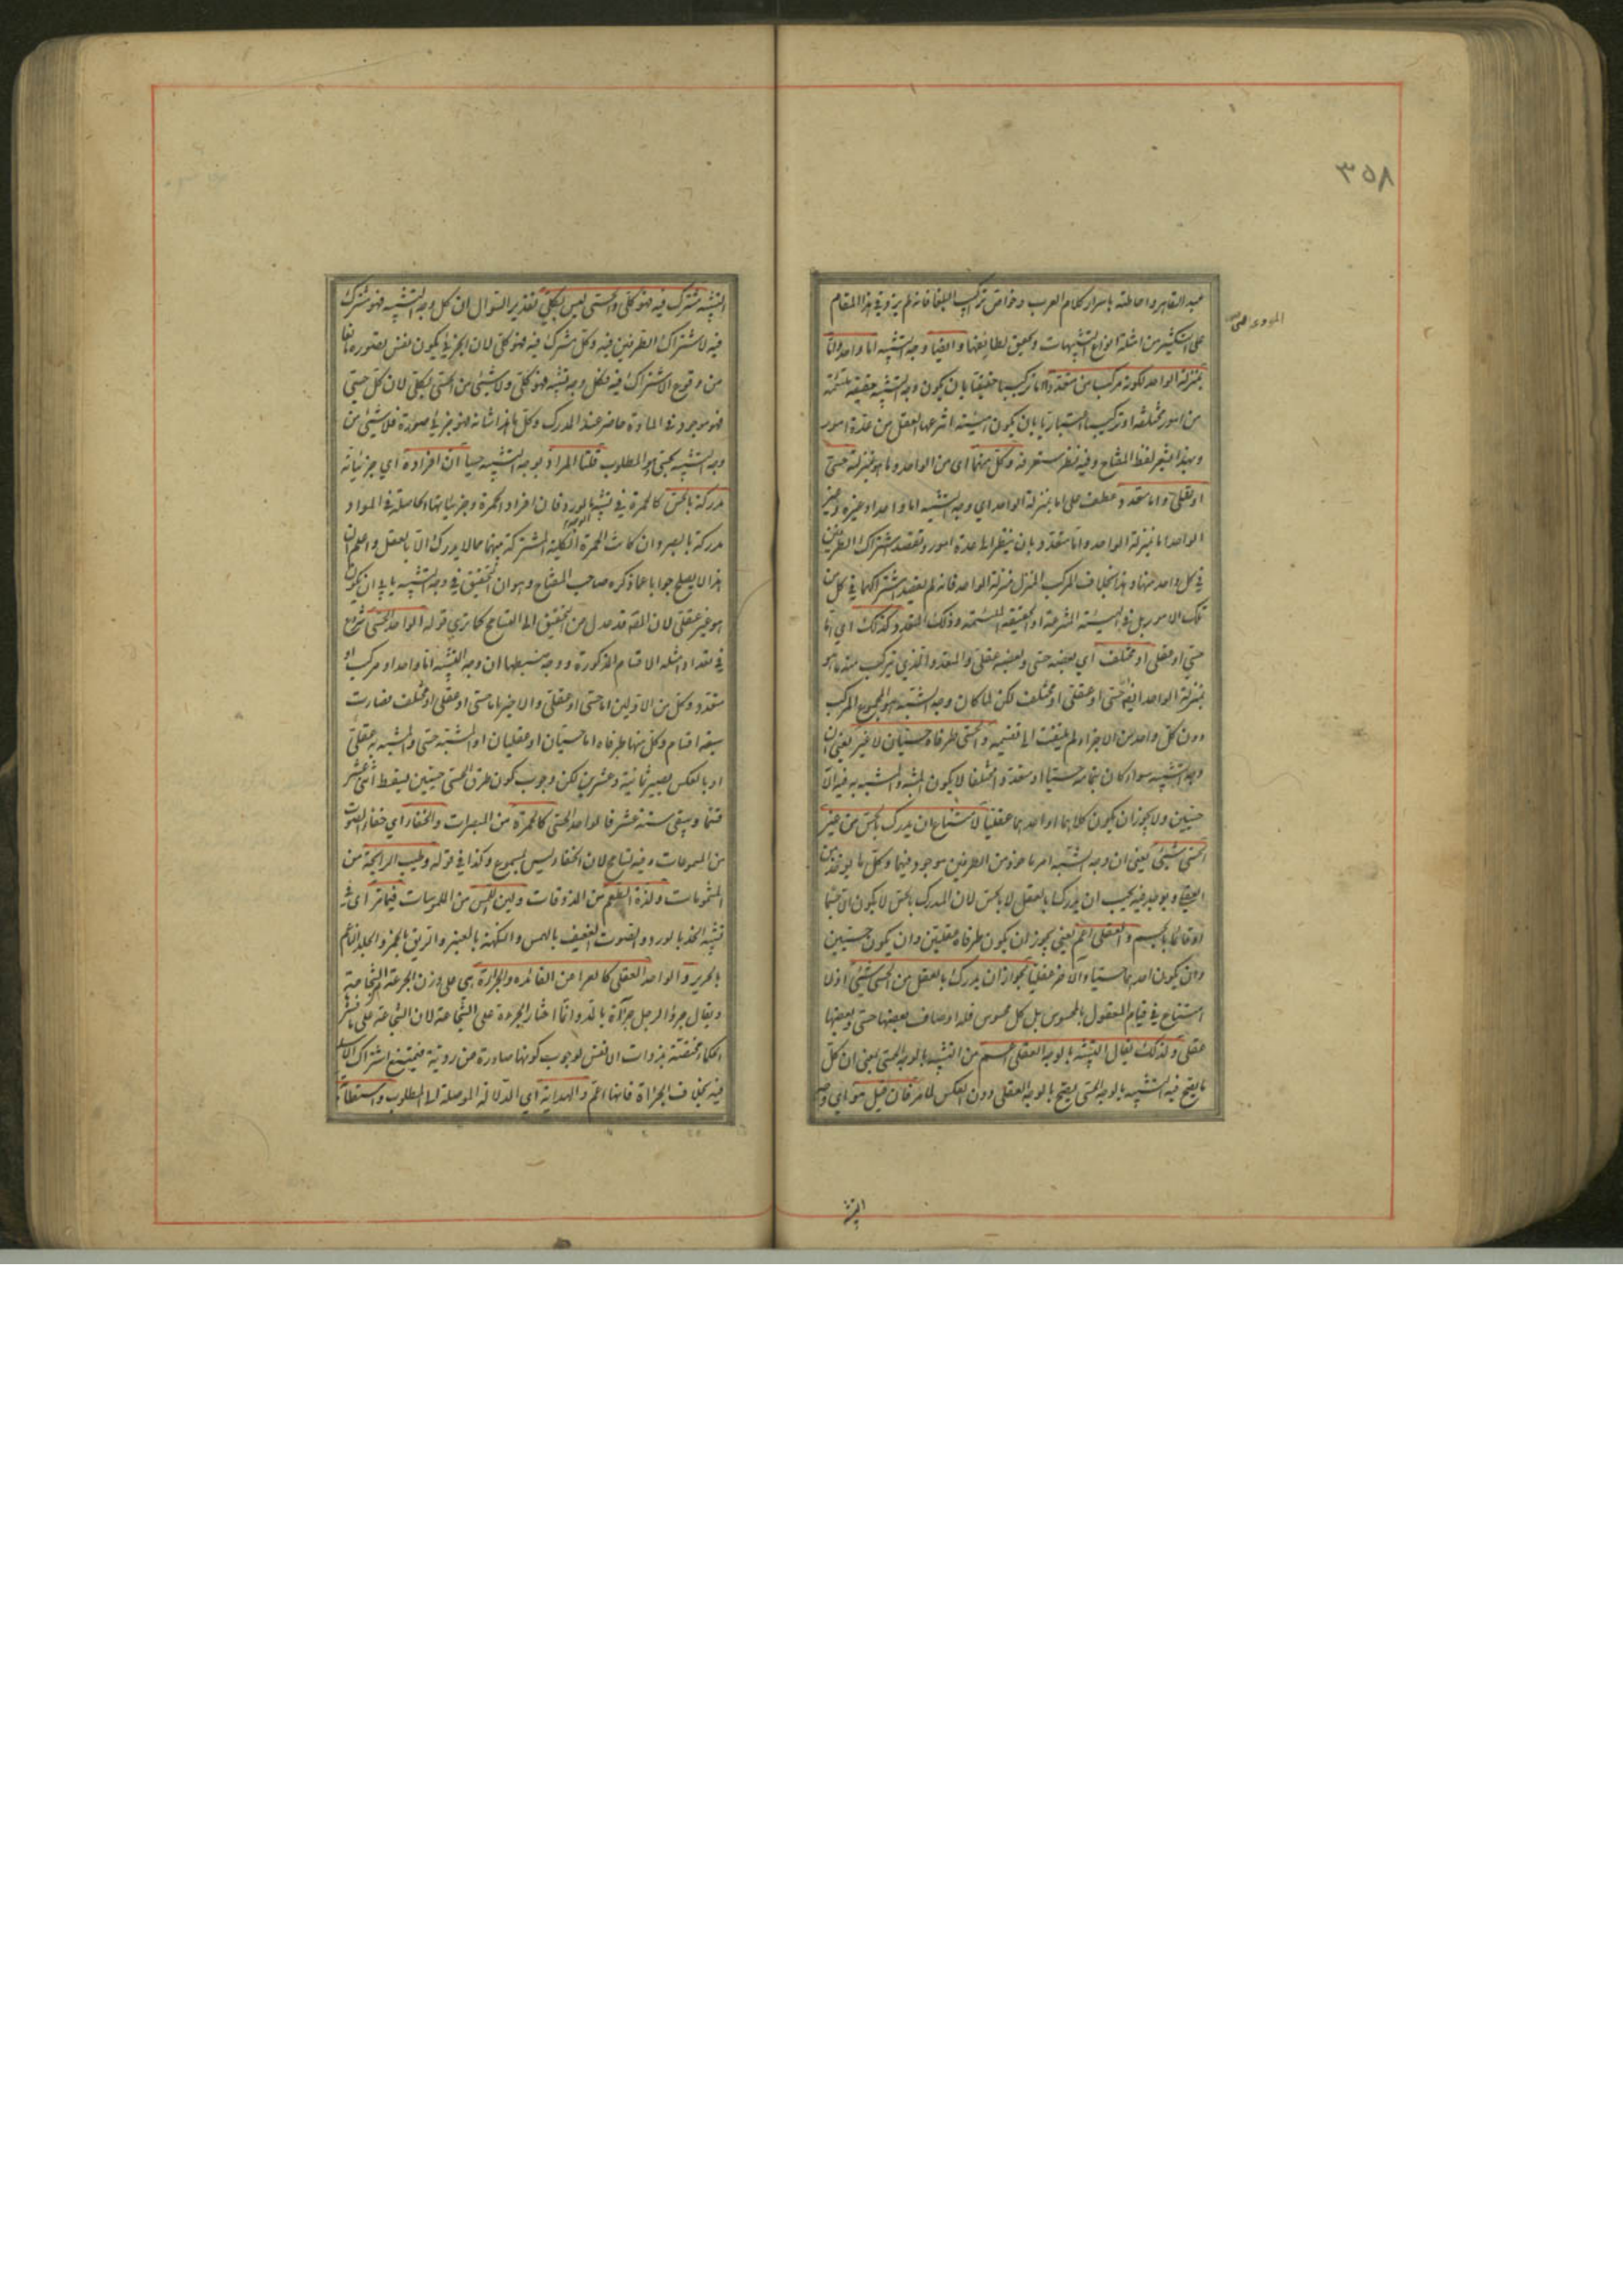 ٣٥٨
عبد القاهر واحاطته باسرار كلام العرب وخواص تراكيب البلغا فانه لم يزد في هذا المقام
على التكثير من امثلة انواع التشبيهات وتحقيق لطايفها وايضا وجه التشبيه اما واحد واما
بمنزلة الواحد لكونه مركبا من متعدد اما تركيبا حقيقيا بان يكون وجه التشبيه حقيقة ملتئمة
من امور مختلفة او تركيبا اعتباريا بان يكون هيئة انتزعها العقل من عدة امور
وبهذا يشعر لفظ المفتاح وفيه نظر ستعرفه وكل منهما اى من الواحد وما هو بمنزلته حسي
او عقلي واما متعدد عطف على اما بمنزلة الواحد اي وجه التشبيه اما واحد او غيره وغير
الواحد اما بمنزلة الواحد واما متعدد بان ينظر الى عدة امور ويقصد اشتراك الطرفين
في كل واحد منها وهذا بخلاف المركب المنزل منزلة الواحد فانه لم يقصد اشتراكهما في كل من
تلك الامور بل في الهيئة المنتزعة او الحقيقة الملتئمة وذلك المتعدد كذلك اي اما
حسي او عقلي او مختلف اي بعضه حسي وبعضه عقلي والمتعدد الذي يتركب منه ما هو
بمنزلة الواحد ايضا حسي او عقلي او مختلف لكن لما كان وجه التشبيه هو المجموع المركب
دون كل واحد من الاجزاء لم يلتفت الى تقسيمه والحسي طرفاه حسيان لا غير يعني ان
وجه التشبيه سواء كان بتمامه حسيا او متعددا مختلفا لا يكون المشبه والمشبه به فيه الا
حسيين ولا يجوز ان يكون كلاهما او احدهما عقليا لامتناع ان يدرك بالحس من غير
الحسي شيئ يعني ان وجه التشبيه امر ماخوذ من الطرفين موجود فيهما وكل ما يوخذ من
العقلي ويوجد فيه يجب ان يدرك بالعقل لا بالحس لان المدرك بالحس لا يكون الا جسما
او قائما بالجسم والعقلي اعم يعني يجوز ان يكون طرفاه عقليين وان يكون حسيين
وان يكون احدهما حسيا والاخر عقليا لجواز ان يدرك بالعقل من الحسي شيئ اذ لا
امتناع في قيام المعقول بالمحسوس بل كل محسوس فله اوصاف بعضها حسي وبعضها
عقلي ولذلك يقال التشبيه بالوجه العقلي اعم من التشبيه بالوجه الحسي بمعنى ان كل
ما يصح فيه التشبيه بالوجه الحسي يصح بالوجه العقلي دون العكس لما مر فان قيل هو اي وجه
التشبيه مشترك فيه فهو كلي والحسي ليس بكلي تقدير السوال ان كل وجه التشبيه فهو مشترك
فيه لاشتراك الطرفين فيه وكل مشترك فيه فهو كلي لان الجزئي يكون نفس تصوره مانعا
من وقوع الاشتراك فيه فكل وجه تشبيه فهو كلي ولا شيئ من الحسي بكلي لان كل حسي
فهو موجود في المادة حاضر عند المدرك وكل ما هذا شانه فهو جزئي ضرورة فلا شيئ من
وجه التشبيه بحسي وهو المطلوب قلنا المراد بوجه التشبيه حسيا ان افراده اي جزئياته
مدركة بالحس كالحمرة في تشبيه بالورد فان افراد الحمرة وجزئياتها الحاصلة في المواد
مدركة بالبصر وان كانت الحمرة الكلية المشتركة بينهما مما لا يدرك الا بالعقل واعلم ان
هذا لا يصلح جوابا عما ذكره صاحب المفتاح وهو ان التحقيق في وجه التشبيه يابى ان يكون
هو غير عقلي لان المصـ قد عدل من التحقيق الى التسامح كما ترى قوله الواحد الحسي شروع
في تعداد امثلة الاقسام المذكورة ووجه ضبطها ان وجه التشبيه اما واحد او مركب او
متعدد وكل من الاولين اما حسي او عقلي والاخير اما حسي او عقلي او مختلف فصارت
سبعة اقسام وكل منها طرفاه اما حسيان او عقليان او المشبه حسي والمشبه به عقلي
او بالعكس يصير ثمانية وعشرين لكن وجوب كون طرفي الحسي حسيين يسقط اثنى عشر
قسما ويبقى ستة عشر فالواحد الحسي كالحمرة من المبصرات والخفاء اي خفاء الصوت
من المسموعات وفيه تسامح لان الخفاء ليس بمسموع وكذا في قوله وطيب الرائحة من
المشمومات ولذة الطعم من المذوقات ولين الملمس من الملموسات فيما مر اى في
تشبيه الخد بالورد والصوت الضعيف بالهمس والنكهة بالعنبر والريق بالخمر والجلد الناعم
بالحرير والواحد العقلي كالعراء عن الفائده والجراءة هي على وزن الجرعة الشجاعة
ويقال جرؤ الرجل جراءة بالمد وانما اختار الجرءة على الشجاعة لان الشجاعة على ما فسر
الحكماء مختصة بذوات الانفس لوجوب كونها صادرة عن روية فيمتنع اشتراك الاسد
فيه بخلاف الجراءة فانها اعم والهداية اي الدلالة الموصلة الى المطلوب واستطابة